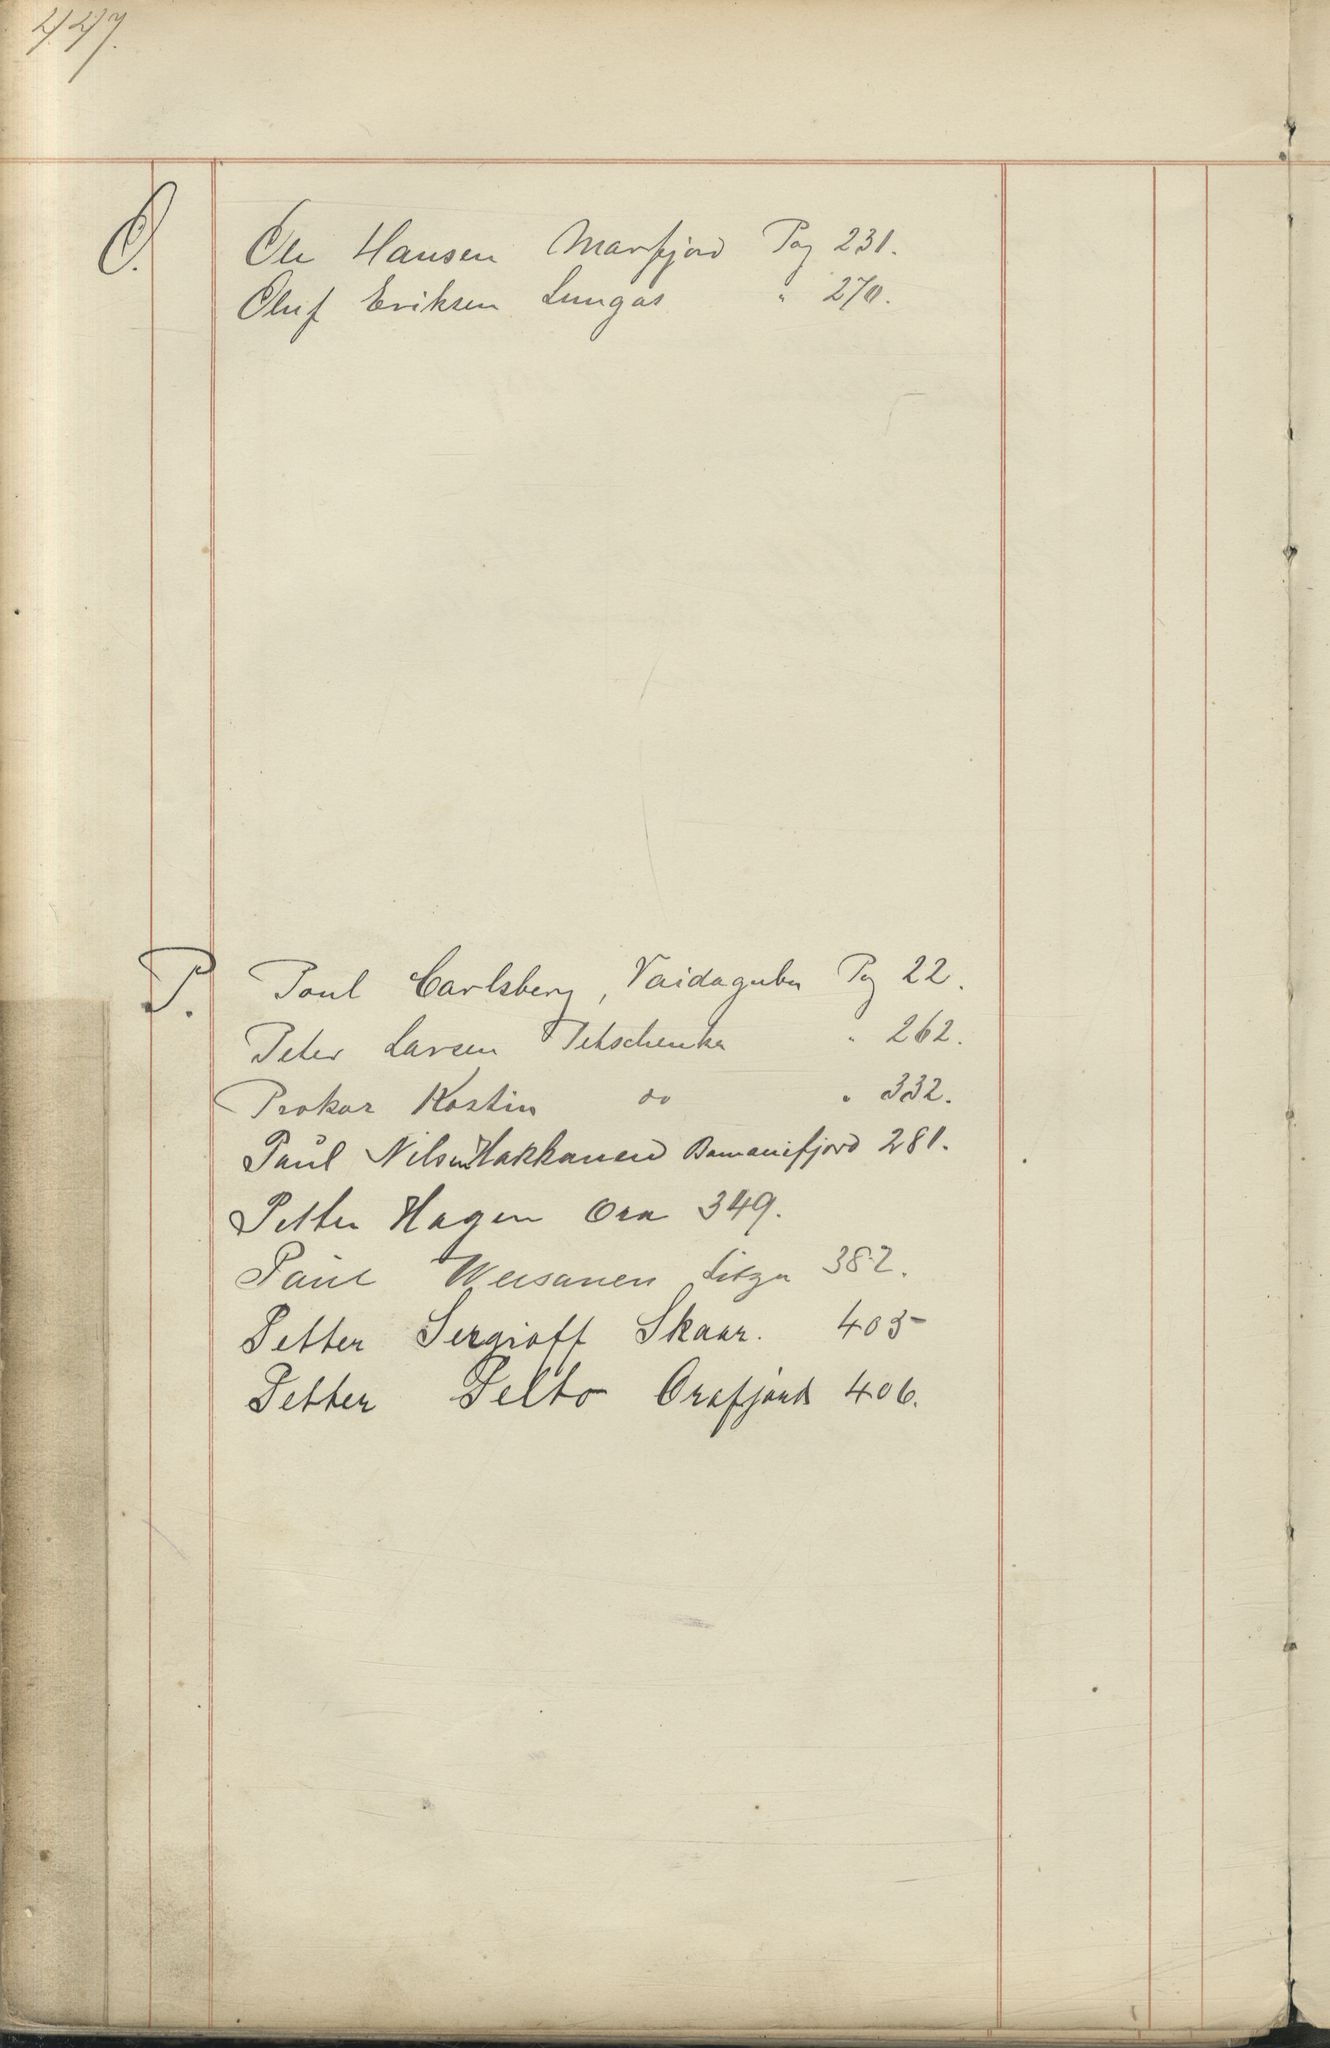 447.
O.
Ole Hansen Marfjord Pag 231.
Oluf Eriksen Lungas " 270.
P.
Poul Carlsberg, Vaidaguba Pg 22.
Peter Larsen Petschenka " 262.
Prokar Kostin do " 332.
Paul Nilsen Hakkanen Bomanifjord 281.
Petter Hagen Ora 349.
Paul Weisanen Litza 382.
Petter Sergioff Skaar. 405
Petter Pelto Orafjord 406.